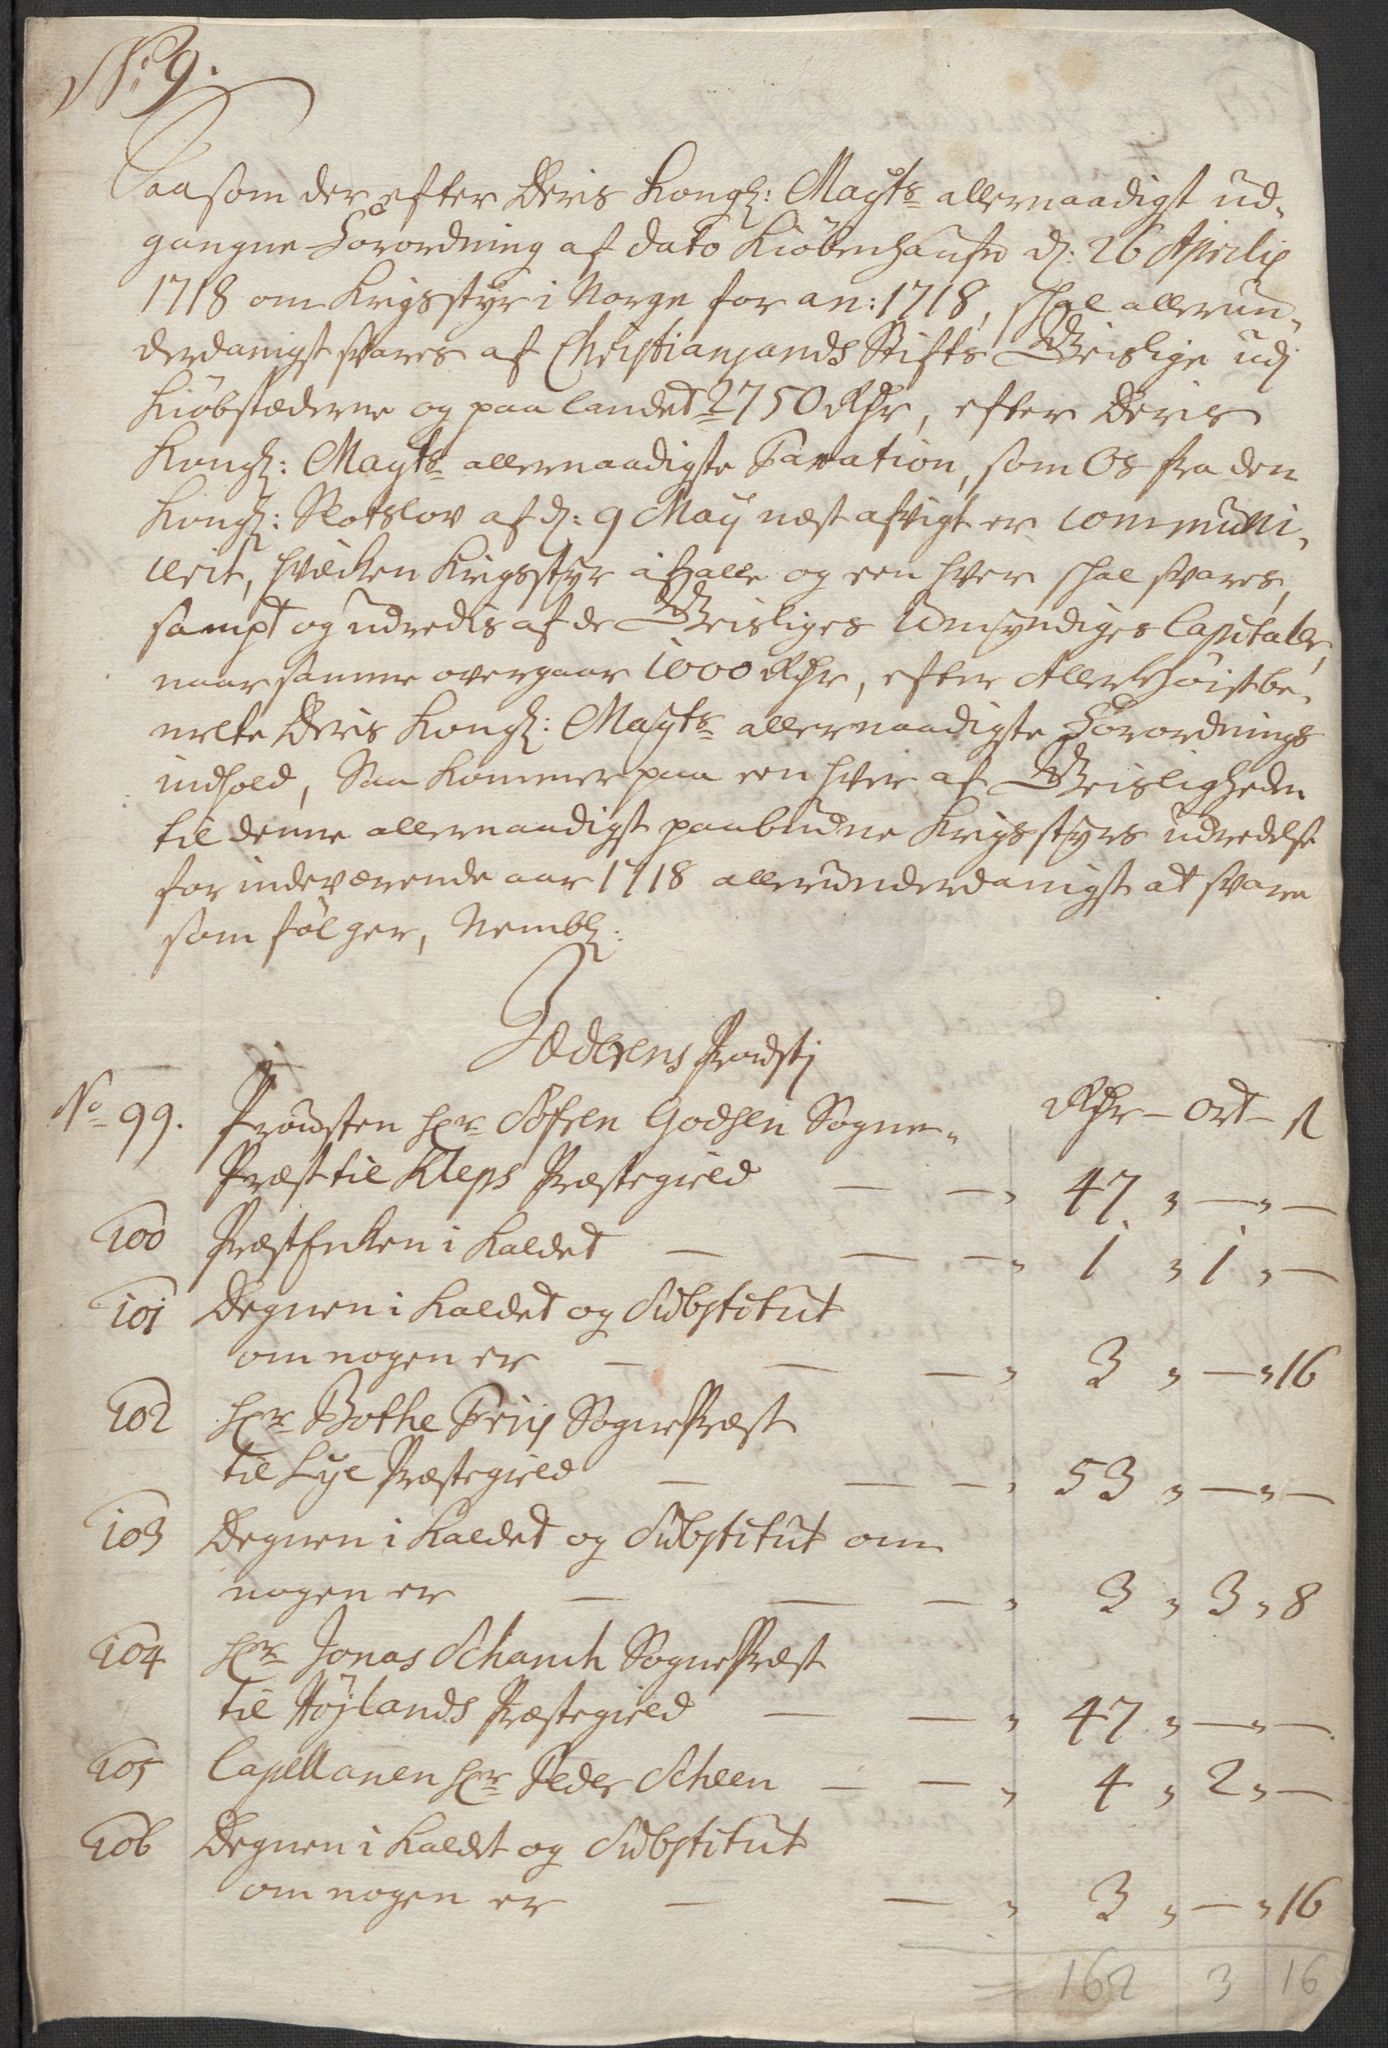 No: 9.
Saasom der efter Deris Kongl: Mayts allernaadigst ud-
gangne Forordning af dato Kiöbenhaufn d: 26 Aprilis
1718 om Krigsstyr i Norge for an: 1718, skal allerun-
derdanigst svares af Christiansands Stifts Geistlige udj
Kiöbstæderne og paa landet 2750 Rdr, efter Deris
Kongl: Mayts allernaadigste Taxation, som Os fra den
Kongl: Slotslov af d: 9 Maÿ næst afvigt er communi-
cerit, hvilcken Krigsstyr af alle og een hver skal svares,
sampt og udredis af de Geistliges Umyndiges Capitaler,
naar samme overgaar 1000 Rdr, efter Allerhöistbe-
melte Deris Kongl: Mayts allernaadigste Forordnings
indhold, Saa kommer paa een hver af Geistligheden
til denne allernaadigst paabudne Krigsstyrs udredelse
for indeværende aar 1718 allerunderdanigst at svare
som fölger, Nembl:
Jæderens Prousti
Rdr – ort – s
No 99. Prousten Hr Söfren Godsen Sogne-
Præst til Kleps Præstegield — — „ 47 „ — „ —
100 PræstEnken i Kaldet — — — „ 1 „ 1 „ —
101 Degnen i Kaldet og Substitut
om nogen er — — — „ 3 „ — „ 16
102 Hr Bothe Friis SognePræst
til Lye Præstegield — — — „ 53 „ — „ —
103 Degnen i Kaldet og Substitut om
nogen er — — — „ 3 „ 3 „ 8
104 Hr Jonas Schanch SognePræst
til Höjlands Præstegield — — „ 47 „ — „ —
105 Capellanen Hr Peder Scheen — — „ 4 „ 2 „ —
106 Degnen i Kaldet og Substitut
om nogen er — — „ 3 „ — „ 16
= 162 3 16